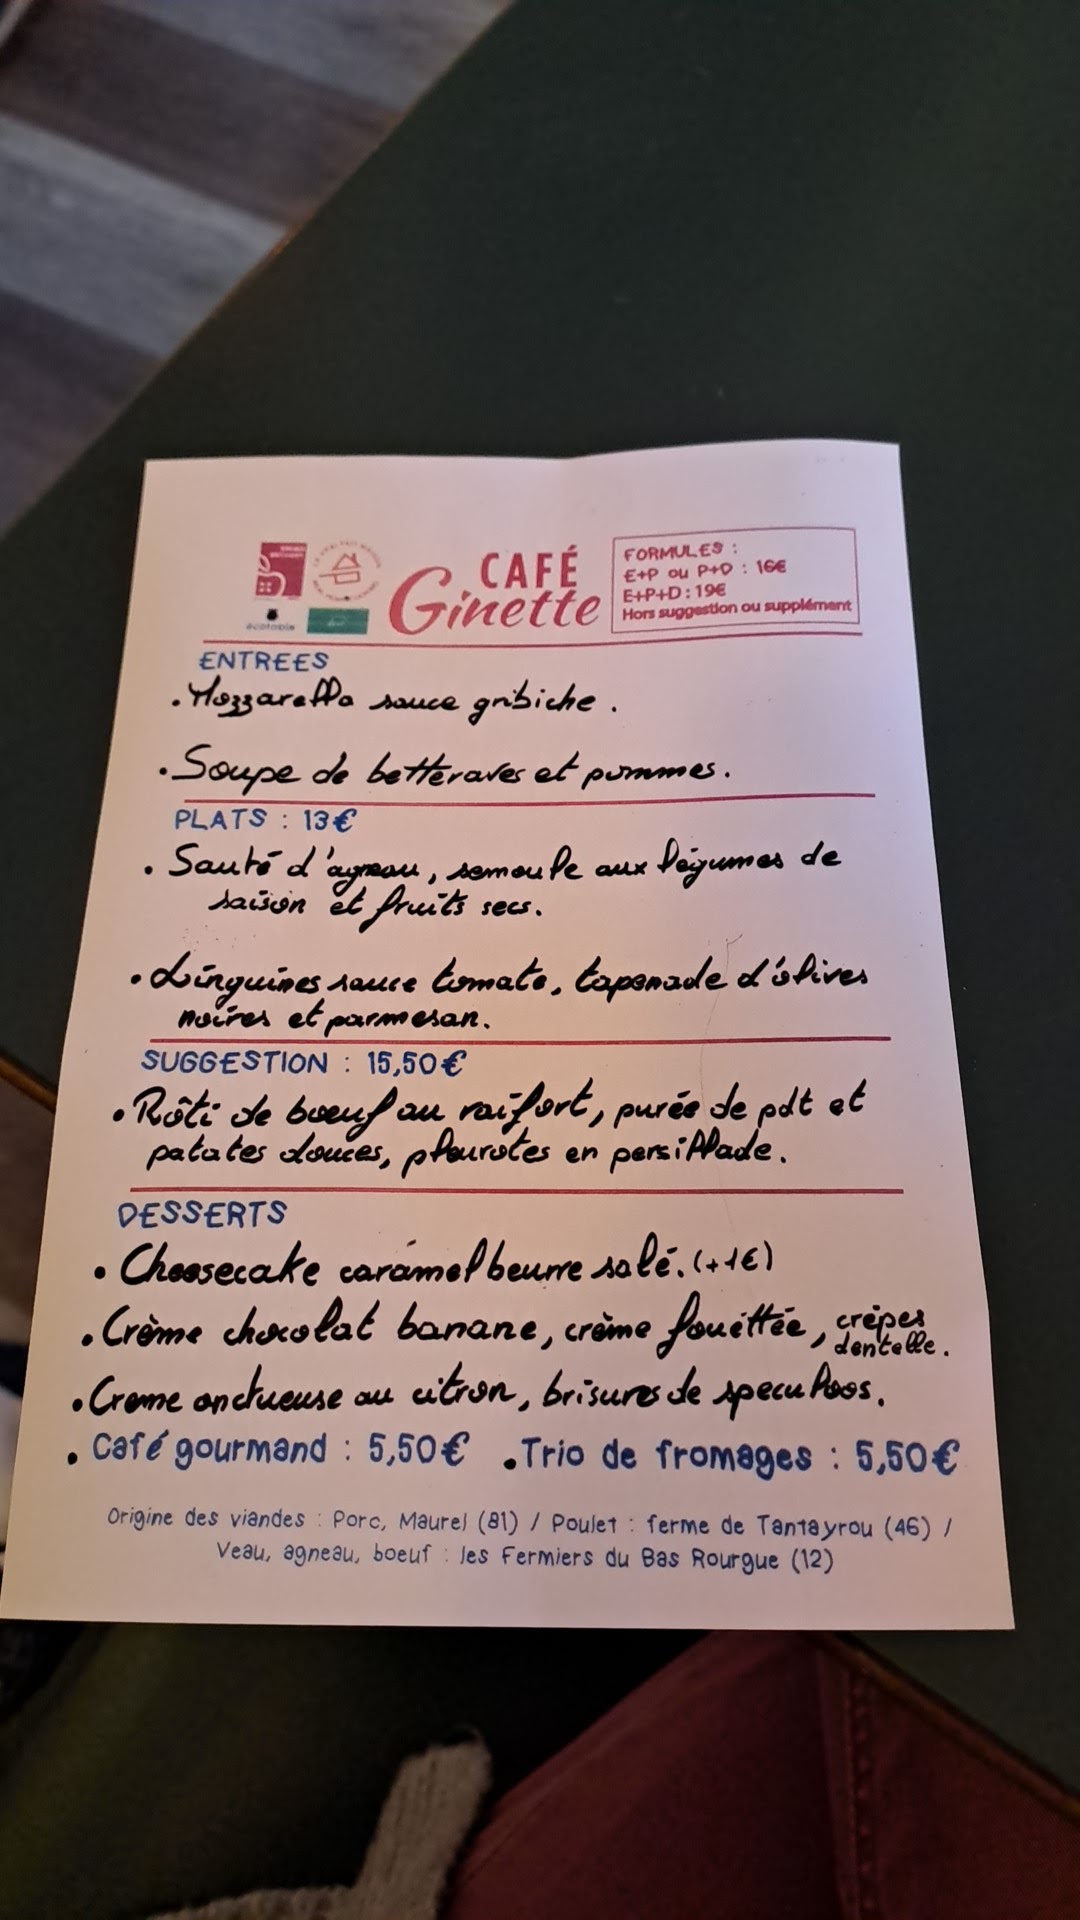 écotable
CAFÉ
Ginette
FORMULES :
E+P ou P+D : 16€
E+P+D : 19€
Hors suggestion ou supplément
ENTREES
• Mozzarella sauce gribiche.
• Soupe de betteraves et pommes.
PLATS : 13€
• Sauté d'agneau, semoule aux légumes de
saison et fruits secs.
• Linguines sauce tomate, tapenade d'olives
noires et parmesan.
SUGGESTION : 15,50€
• Rôti de boeuf au raifort, purée de pdt et
patates douces, pleurotes en persillade.
DESSERTS
• Cheesecake caramel beurre salé. (+1€)
• Crème chocolat banane, crème fouettée, crêpes
dentelle.
• Creme onctueuse au citron, brisures de speculoos.
• Café gourmand : 5,50€ • Trio de fromages : 5,50€
Origine des viandes : Porc, Maurel (81) / Poulet : ferme de Tantayrou (46) /
Veau, agneau, boeuf : les Fermiers du Bas Rourgue (12)